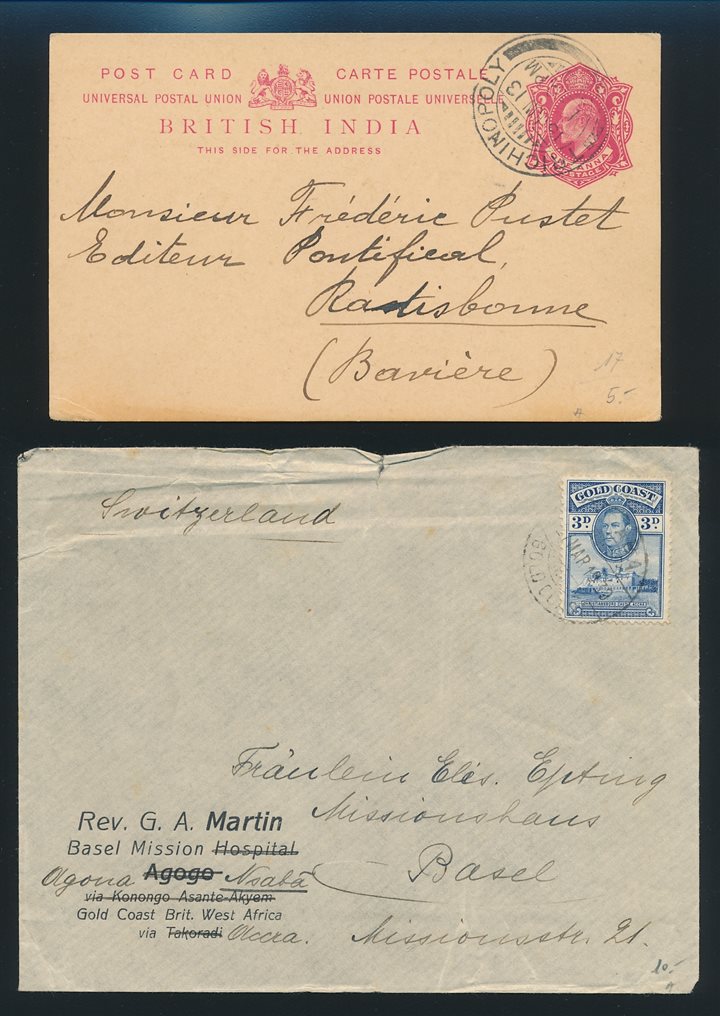 POST CARD CARTE POSTALE
UNIVERSAL POSTAL UNION UNION POSTALE UNIVERSELLE
BRITISH INDIA
THIS SIDE FOR THE ADDRESS
ANNA
POSTAGE
CHINOPOLY
Monsieur Frédéric Pustet
Editeur Pontifical,
Ratisbonne
(Bavière)
17
5.-
Switzerland
GOLD COAST
3D 3D
MAR
Fräulein Elis. Epting
Missionshaus
Basel
Missionsstr. 21.
Rev. G. A. Martin
Basel Mission Hospital
Agona Agogo Nsaba
via Konongo Asante-Akyem
Gold Coast Brit. West Africa
via Takoradi Accra.
10.-